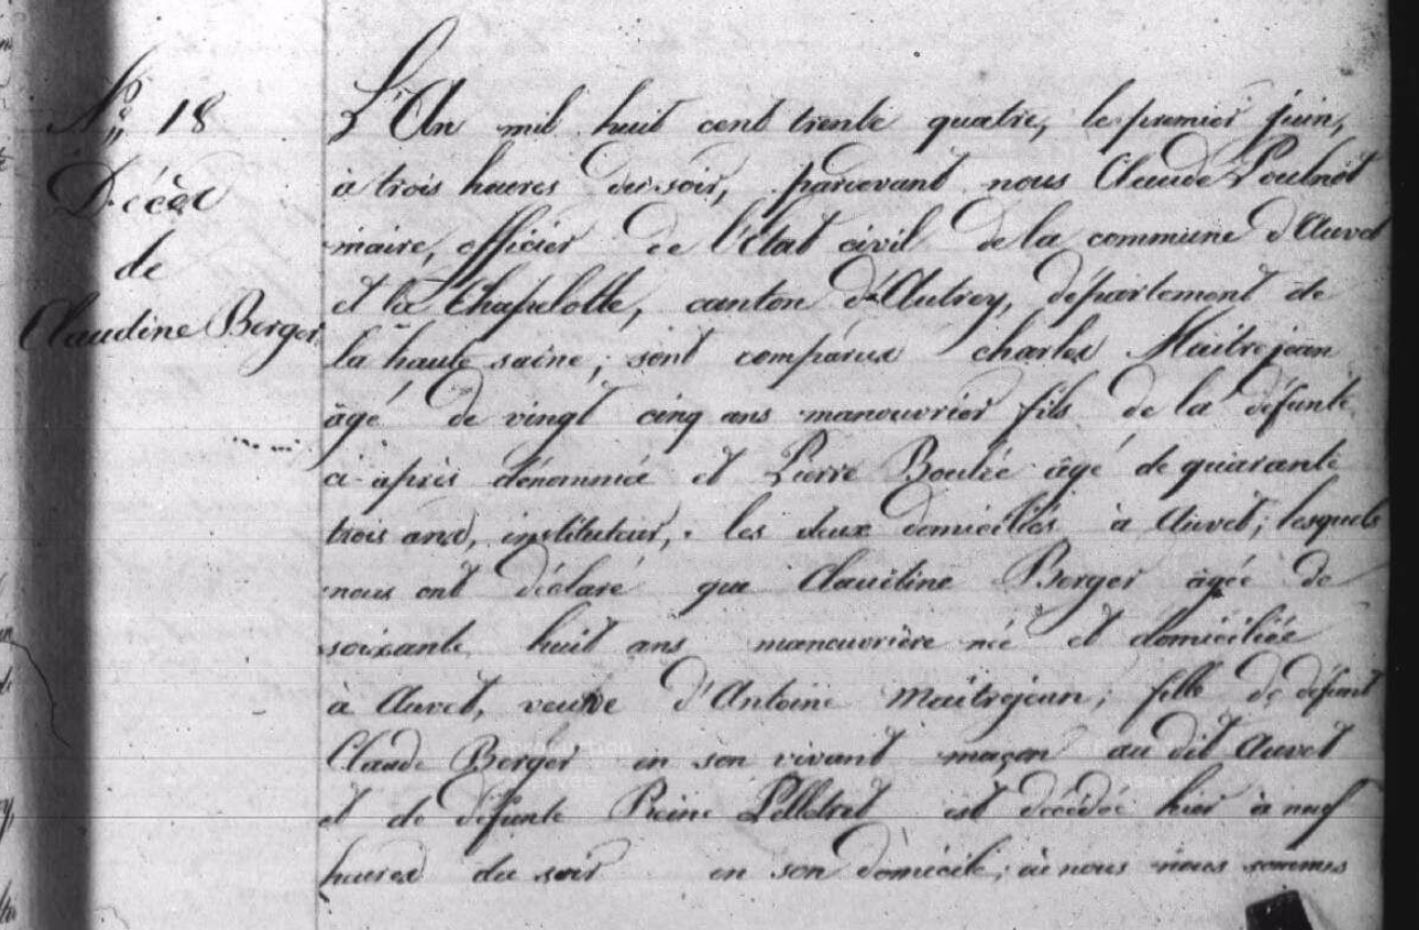 N.° 18
Décès
de
Claudine Berger
L'An mil huit cent trente quatre, le premier juin,
à trois heures du soir, pardevant nous Claude Poulnot
maire, officier de l'état civil de la commune d'Auvet
et la Chapelotte, canton d'Autrey, département de
la haute saône, sont comparus charles Maitrejean
âgé de vingt cinq ans manouvrier fils de la défunte
ci-après dénommée et Pierre âgé de quarante
trois ans, instituteur, les deux domiciliés à Auvet, lesquels
nous ont déclaré que Claudine Berger âgée de
soixante huit ans manouvrière née et domiciliée
à Auvet, veuve d'Antoine Maitrejean, fille de défunt
Claude Berger en son vivant maçon au dit Auvet
et de défunte Reine Pelletret est décédée hier à neuf
heures du soir en son domicile, où nous nous sommes